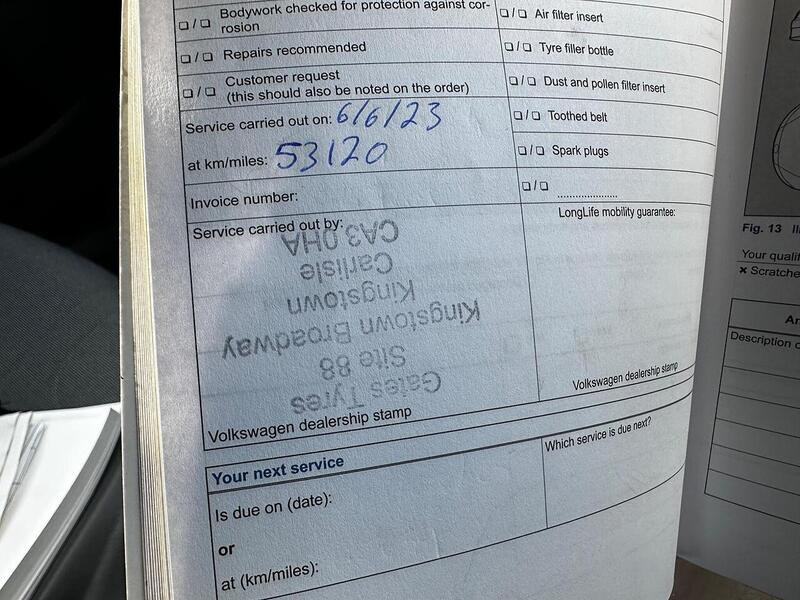 ❏ / ❏ Bodywork checked for protection against cor-
rosion
❏ / ❏ Repairs recommended
❏ / ❏ Customer request
(this should also be noted on the order)
Service carried out on: 6/6/23
at km/miles: 53120
Invoice number:
Service carried out by:
Gates Tyres
Site 88
Kingstown Broadway
Kingstown
Carlisle
CA3 0HA
Volkswagen dealership stamp
❏ / ❏ Air filter insert
❏ / ❏ Tyre filler bottle
❏ / ❏ Dust and pollen filter insert
❏ / ❏ Toothed belt
❏ / ❏ Spark plugs
❏ / ❏ ....................
LongLife mobility guarantee:
Volkswagen dealership stamp
Your next service
Is due on (date):
or
at (km/miles):
Which service is due next?
Fig. 13
Your
× Scratche
Description